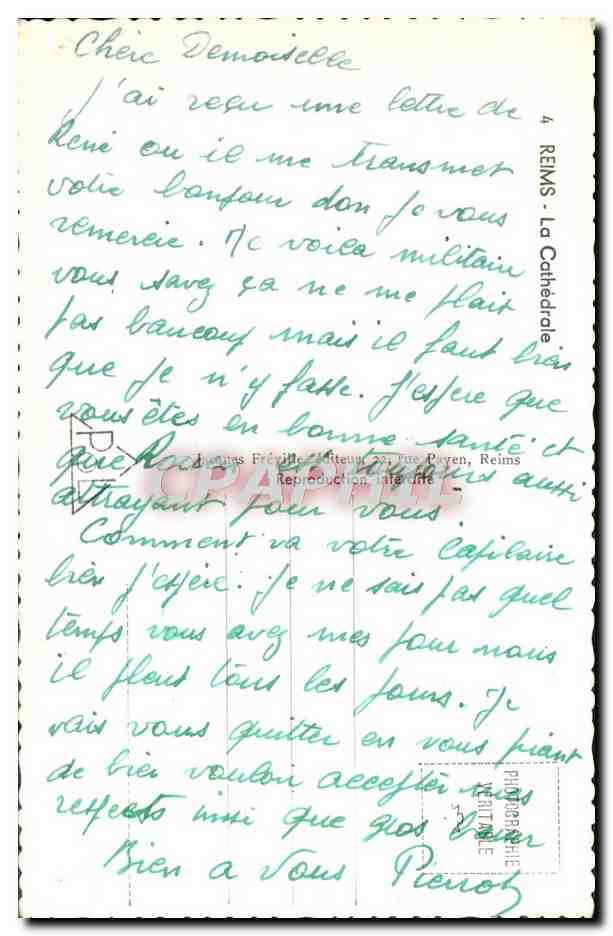 Chère Demoiselle
J'ai reçu une lettre de
René ou il me transmet
votre bonjour don je vous
remercie. Je voila militair
vous savez ça ne me plait
pas baucoup mais il faut bien
que je n'y fasse. J'espere que
vous êtes en bonne santé et
que est toujours aussi
attrayant pour vous.
Comment va votre capilaire
bien j'espère. Je ne sais pas quel
temps vous avez mes pour nous
il pleut tous les jours. Je
vais vous quitter en vous priant
de bien voulou accepter mes
respects insi que gros
Bien a Vous Pierrot
4 REIMS - La Cathédrale
Jacques Fréville, éditeur, 22, rue Payen, Reims
Reproduction interdite
CPAPHIL
PHOTOGRAPHIE
VÉRITABLE